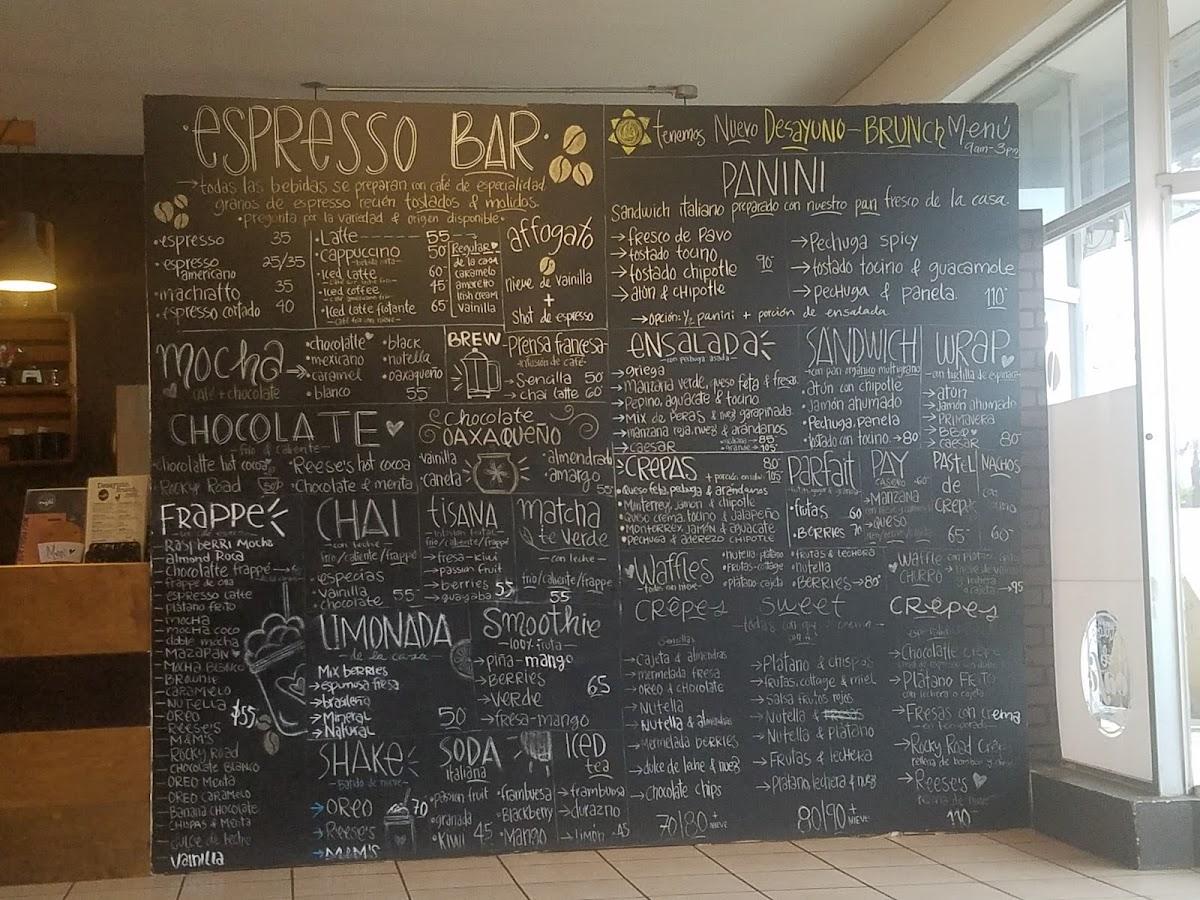 ·ESPRESSO BAR·
→todas las bebidas se preparan con café de especialidad
granos de espresso recién tostados & molidos.
•pregunta por la variedad & origen disponible•
•espresso 35
•espresso americano 25/35
•machiatto 35
•espresso cortado 40
•Latte 55
•cappuccino 50
•Iced Latte 60
•Iced coffee 45
•Iced Latte flotante 65
Regular
de la casa
caramelo
amaretto
Irish cream
Vainilla
affogato
nieve de vainilla
+
Shot de espresso
Mocha
café + chocolate
•chocolate
•mexicano
•caramel
•blanco
•black
•nutella
•oaxaqueño
55
BREW
Prensa francesa
-infusión de café-
→Sencilla 50
→chai latte 60
CHOCOLATE
-frío & caliente-
•chocolatte hot cocoa
•Rocky Road
•Reese's hot cocoa
•Chocolate & menta
Chocolate
OAXAQUEÑO
•vainilla
•canela
•almendrado
•amargo
55
FRAPPE
Raspberri Mocha
almond Roca
Chocolatte frappé
espresso latte
platano frito
mocha
mocha coco
doble mocha
MAZAPAN
MOCHA BLANCO
BROWNIE
CARAMELO
NUTELLA
OREO
REESE'S
M&M'S
Rocky Road
CHOCOLATE BLANCO
OREO Menta
OREO CARAMELO
Banana CHOCOLATE
CHISPAS & Menta
dulce de leche
Vainilla
$55
CHAI
-con leche-
frío/caliente/frappé
•especias
•vainilla
•chocolate 55
tisana
frío/caliente/frappe
→fresa-kiwi
→passion fruit
→berries
→guayaba 55
matcha
te verde
-con leche-
frío/caliente/frappe
55
LIMONADA
-de la casa-
Mix berries
→espumosa fresa
→brasileña
→Mineral
→Natural
50
Smoothie
-100% fruta-
→piña-mango
→BERRIES
→verde
→fresa-mango
65
SHAKE
→OREO
→Reese's
→M&M'S
70
SODA
italiana
•passion fruit
•granada
•Kiwi
45
•frambuesa
•Blackberry
•Mango
ICED
tea
→frambuesa
→durazno
→limón 45
tenemos Nuevo Desayuno-BRUNCH Menú
9am-3pm
PANINI
Sandwich italiano preparado con nuestro pan fresco de la casa
→fresco de Pavo
→tostado tocino
→tostado chipotle
→atún & chipotle
90
→Pechuga spicy
→tostado tocino & guacamole
→pechuga & panela
110
→opción: ½ panini + porción de ensalada
ENSALADA
-con pechuga asada-
→griega
→manzana verde, queso feta & fresas
→Pepino, aguacate & tocino
→Mix de Peras & nuez garapiñada
→manzana roja, nuez & arándanos
→caesar
85
105
SANDWICH
-con pan orgánico multigrano-
•atún con chipotle
•Jamón ahumado
•Pechuga, panela
•tostado con tocino →80
WRAP
→atún
→Jamón ahumado
→Primavera
→caesar 80
→CREPAS 80
105
•Queso feta, pechuga & arándanos
•Monterrey, jamón & chipotle
•Queso crema, tocino & jalapeño
•Monterrey, Jamón & aguacate
•Pechuga & aderezo chipotle
PARFAIT
•frutas 60
•Berries 70
PAY
CASERO 60
→Manzana
→queso
PASTEL
de
crepa
65
NACHOS
60
Waffles
•nutella-platano
•frutas-cottage
•platano cajeta
•frutas & lechera
•nutella
•BERRIES →80
WAFFLE
CHURRO
→95
CRÊPES SWEET CRÊPES
Sencillas
→Cajeta & almendras
→mermelada fresa
→oreo & chocolate
→Nutella
→Nutella & almendras
→Mermelada berries
→dulce de leche & nuez
→Chocolate chips
70|80 + NIEVE
→Plátano & chispas
→frutas, cottage & miel
→Salsa frutos rojos
→Nutella &
→Nutella & platano
→Frutas & lechera
→Platano, lechera & nuez
80|90 + NIEVE
→Chocolatte crêpe
→Platano Frito
con lechera o cajeta
→Fresas con crema
→Rocky Road Crêpe
rellena de bombon
→Reese's
110